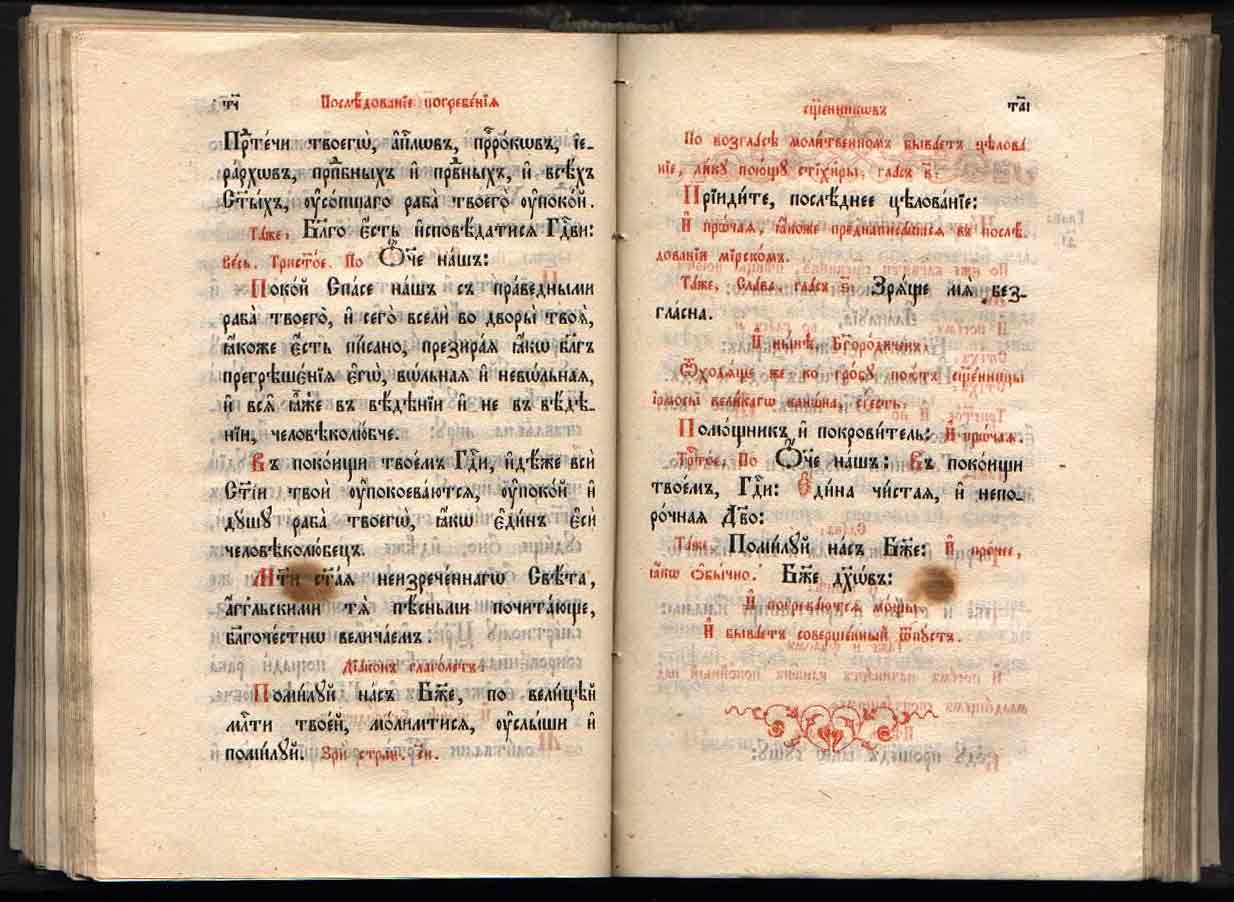 тч҃ Послѣ́дованїе погребе́нїѧ
Прⷣте́чи твоегѡ̀, а҆пⷭ҇лѡвъ, прⷪ҇рѡкѡвъ, і҆е-
ра́рхѡвъ, прпⷣбныхъ и҆ прⷣвныхъ, и҆ всѣ́хъ
Ст҃ы́хъ, ᲂу҆со́пшаго раба̀ твоего̀ ᲂу҆поко́й.
Та́же, Бл҃го є҆́сть и҆сповѣ́датисѧ Гдⷭ҇ви:
Ве́сь. Трист҃о́е. По Ѻ҆́ч҃е на́шъ:
Поко́й Спа́се на́шъ съ пра́ведными
раба̀ твоего̀, и҆ сего̀ вселѝ во дворы̀ твоѧ̀,
ꙗ҆́коже є҆́сть пи́сано, презира́ѧ ꙗ҆́кѡ бл҃гъ
прегрѣше́нїѧ є҆гѡ̀, вѡ́льнаѧ и҆ невѡ́льнаѧ,
и҆ всѧ̑ ꙗ҆̀же въ вѣ́дѣнїи и҆ не въ вѣ́дѣ-
нїи, человѣколю́бче.
Въ поко́ищи твое́мъ Гдⷭ҇и, и҆дѣ́же всѝ
Ст҃і́и твоѝ ᲂу҆покоева́ютсѧ, ᲂу҆поко́й и҆
дꙋ́шꙋ раба̀ твоегѡ̀, ꙗ҆́кѡ є҆ди́нъ є҆сѝ
человѣколю́бецъ.
Мт҃и ст҃а́ѧ неизрече́ннагѡ Свѣ́та,
а҆́гг҃льскими тѧ̀ пѣ́сньми почита́юще,
бл҃гоче́стнѡ велича́емъ.
Дїа́конъ глаго́летъ:
Поми́лꙋй на́съ Бж҃е, по вели́цѣй
млⷭ҇ти твое́й, мо́лимтисѧ, ᲂу҆слы́ши и҆
поми́лꙋй. Зри стран.
сщ҃е́нникѡвъ таі҃
По возгла́сѣ моли́твенномъ быва́етъ цѣлова́
нїе, ли́кꙋ пою́щꙋ стїхи̑ры, гла́съ в҃.
Прїиди́те, послѣ́днее цѣлова́нїе:
И҆ про́чаѧ, ꙗ҆́коже преднаписа́шасѧ въ послѣ́
дованїи мірско́мъ.
Та́же, Сла́ва, гла́съ ѕ҃: Зрѧ́ще мѧ̀ без-
гла́сна.
И҆ ны́нѣ, Бг҃оро́диченъ.
Ѿходѧ́ще же ко гро́бꙋ пою́тъ сщ҃е́нницы
і҆рмосы̀ вели́кагѡ кано́на, сіе́сть:
Помо́щникъ и҆ покрови́тель: И҆ прѡ́чаѧ.
Трⷭ҇то́е. По Ѻ҆́ч҃е на́шъ: Въ поко́ищи
твое́мъ, Гдⷭ҇и: Є҆ди́на чи́стаѧ, и҆ непо-
ро́чнаѧ Дв҃о:
Та́же Поми́лꙋй на́съ Бж҃е: И҆ про́чее,
ꙗ҆́кѡ ѡ҆бы́чно. Бж҃е дх҃ѡ́въ:
И҆ погреба́ютсѧ мо́щы.
И҆ быва́етъ соверше́нный ѿпꙋ́стъ.